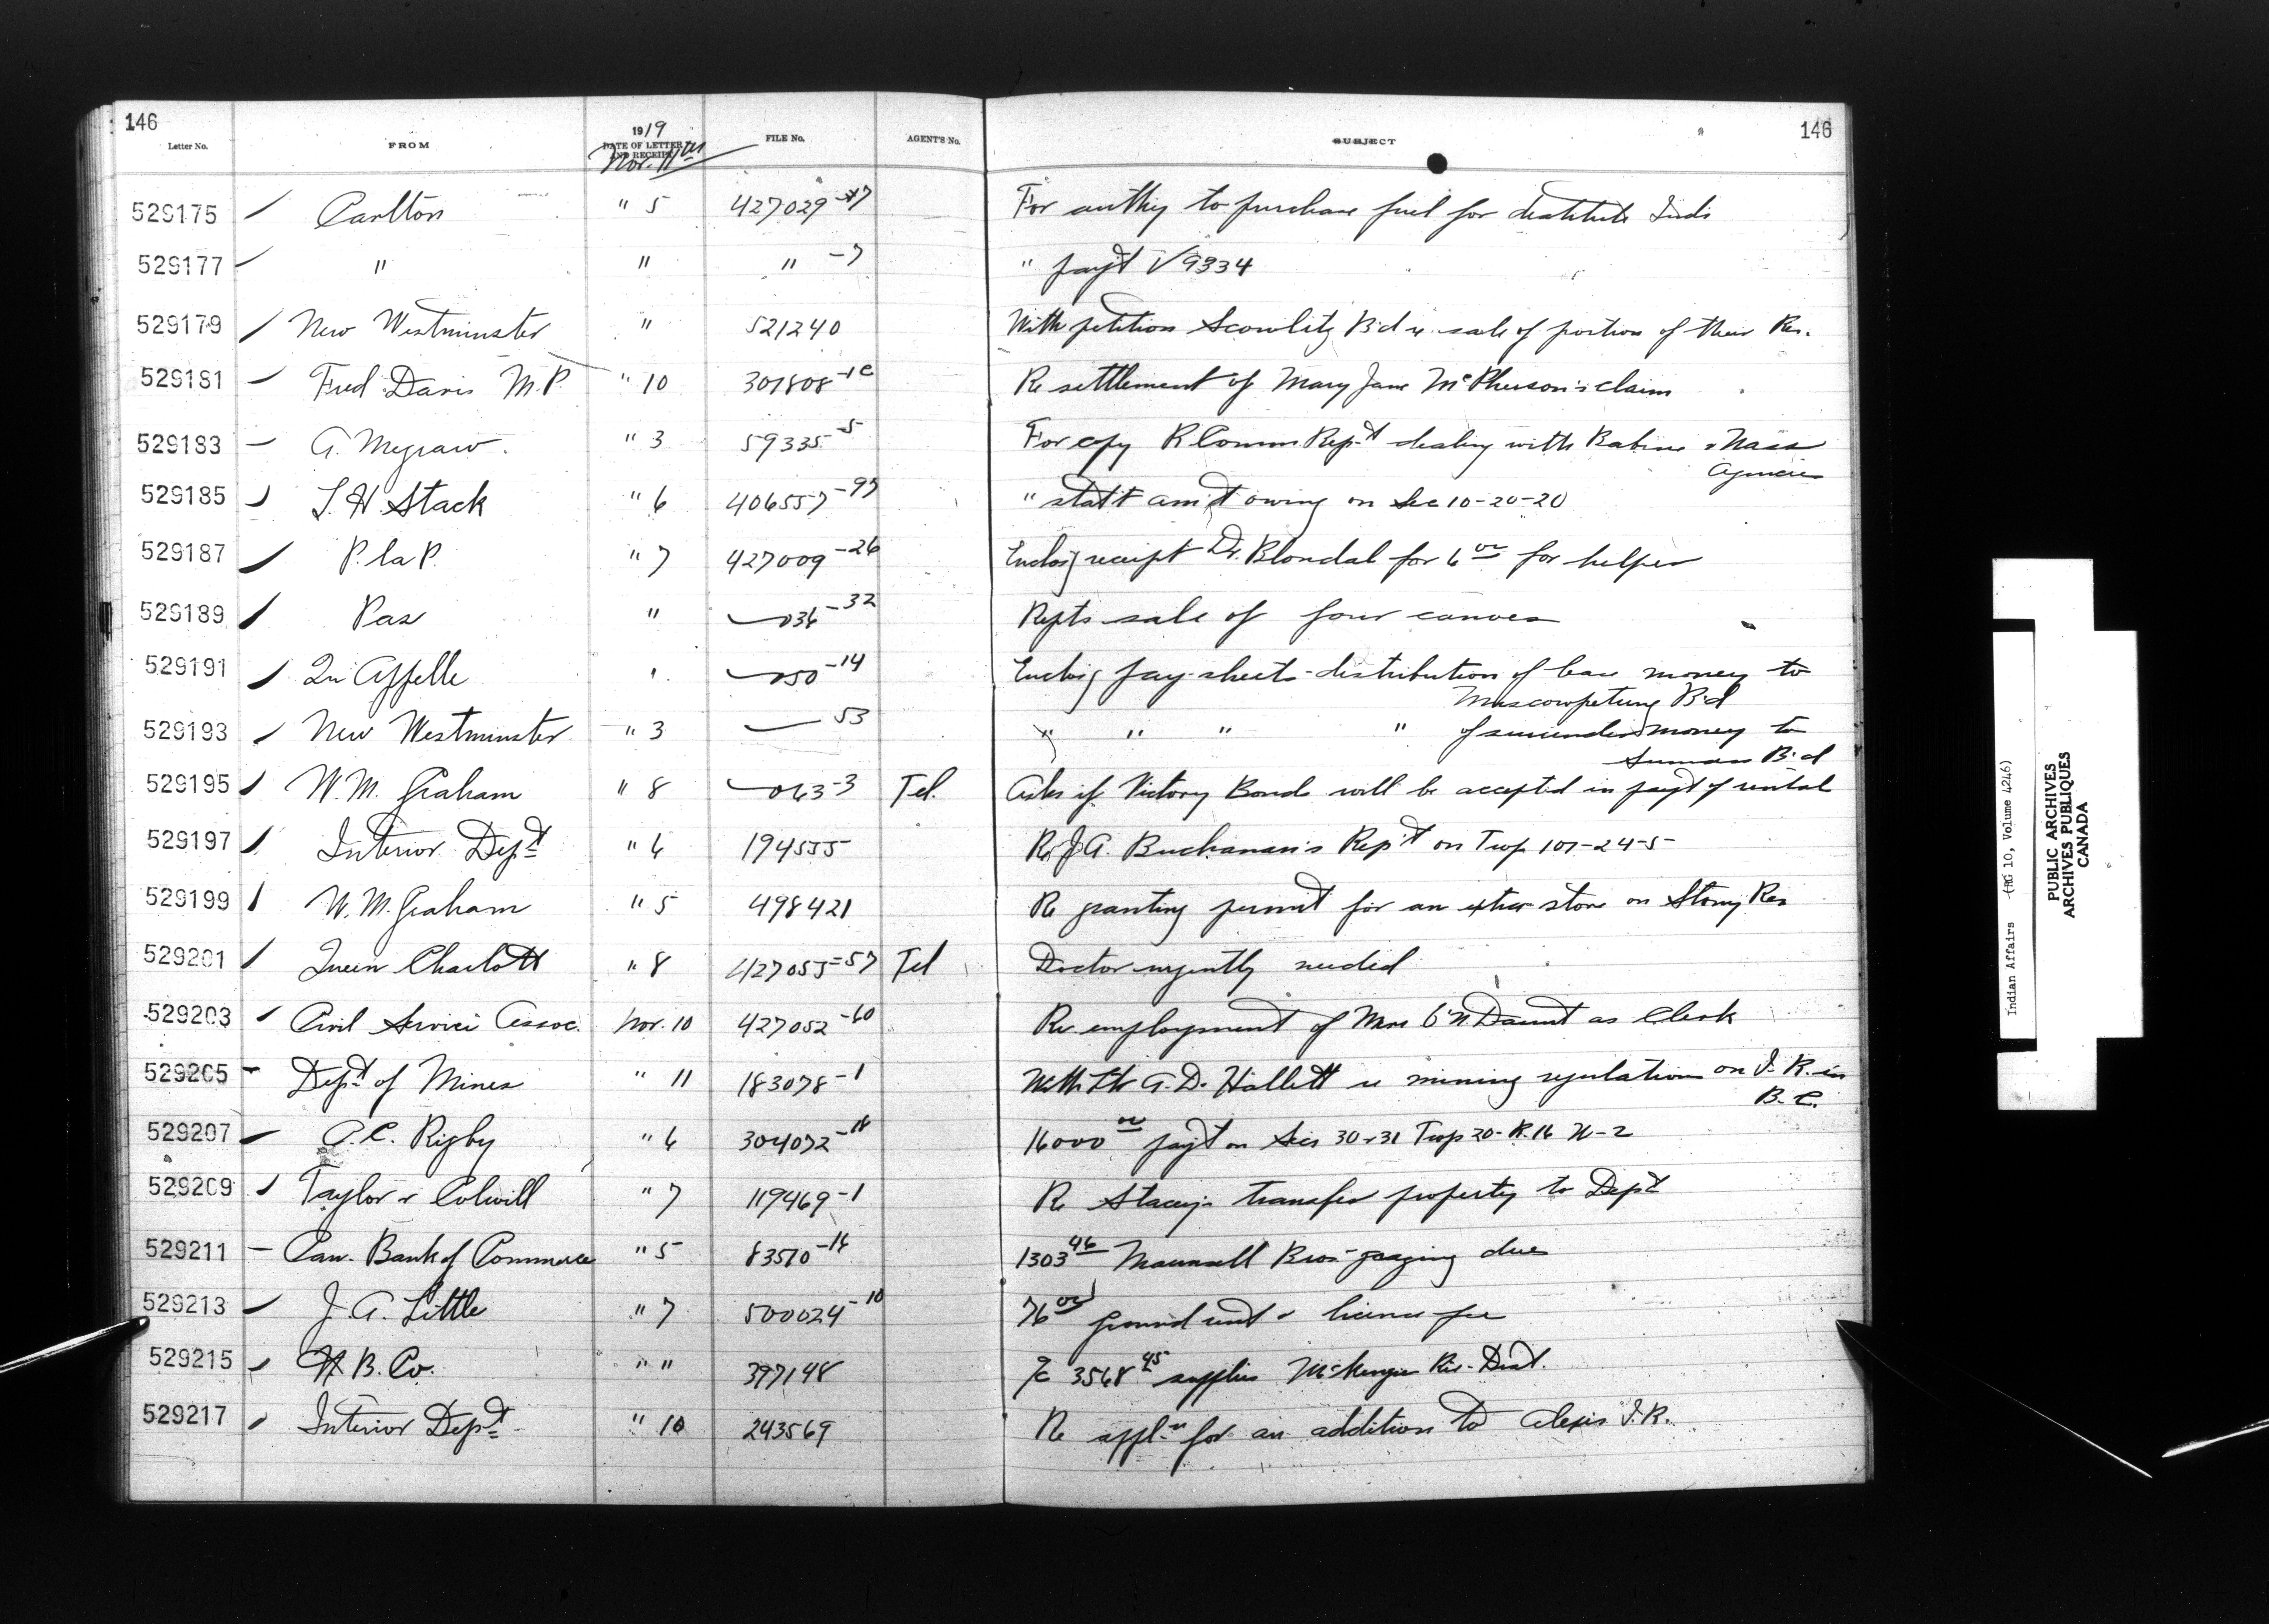 146
146
Letter No. FROM 1919 DATE OF LETTER AND RECEIPT FILE No. AGENT'S No. SUBJECT
Nov. 11th
529175 Carlton " 5 427029 For authy to purchase fuel for destitute Inds
529177 " " " -7 " pay't V 9334
529179 New Westminster " 521240 With petition Scowlitz B'd re sale of portion of their Res.
529181 Fred Davis M.P. " 10 301808 -1C Re settlement of Mary Jane McPherson's claim
529183 A. Megraw. " 3 59335 -5 For copy R Comm Rep't dealing with Babine & Nass
Agencies
529185 J. H. Stack " 6 406557 -97 " stat't am't owing on Sec 10-20-20
529187 P. la P. " 7 427009 -26 Enclos'g receipt Dr. Blondal for 6 00 for helper
529189 Pas " 036 -32 Repts sale of four canoes
529191 Qu'Appelle " 050 -14 Enclos'g pay-sheets distribution of lease money to
Muscowpetung B'd
529193 New Westminster " 3 53 " " " " of surrender money to
Sumas B'd
529195 W. M. Graham " 8 063 -3 Tel. Asks if Victory Bonds will be accepted in pay't of rental
529197 Interior Dep't " 6 194555 Re J. A. Buchanan's Rep't on Twp 107-24-5
529199 W. M. Graham " 5 498421 Re granting permit for an extra store on Stony Res
529201 Queen Charlott " 8 427055 -57 Tel Doctor urgently needed
529203 Civil Service Assoc. Nov. 10 427052 -60 Re employment of Mrs O'N Daunt as Clerk
529205 Dep't of Mines " 11 183078 -1 With ltr A. D. Hallett re mining regulations on I. R. in
B. C.
529207 A. C. Rigby " 6 304072 -18 16000 00 pay't on Secs 30 & 31 Twp 20- R. 16 W-2
529209 Taylor & Colwill " 7 119469 -1 Re Stacey's transfer property to Dep't
529211 Can. Bank of Commerce " 5 83570 -18 1303 46 Maunsell Bros. grazing dues
529213 J. A. Little " 7 500024 -10 76 00 ground rent & license fee
529215 H. B. Co. " " 397148 a/c 3568 45 supplies McKenzie Riv. Dist.
529217 Interior Dep't " 10 243569 Re appl'n for an addition to Alexis I. R.
Indian Affairs (RG 10, Volume 4246)
PUBLIC ARCHIVES
ARCHIVES PUBLIQUES
CANADA